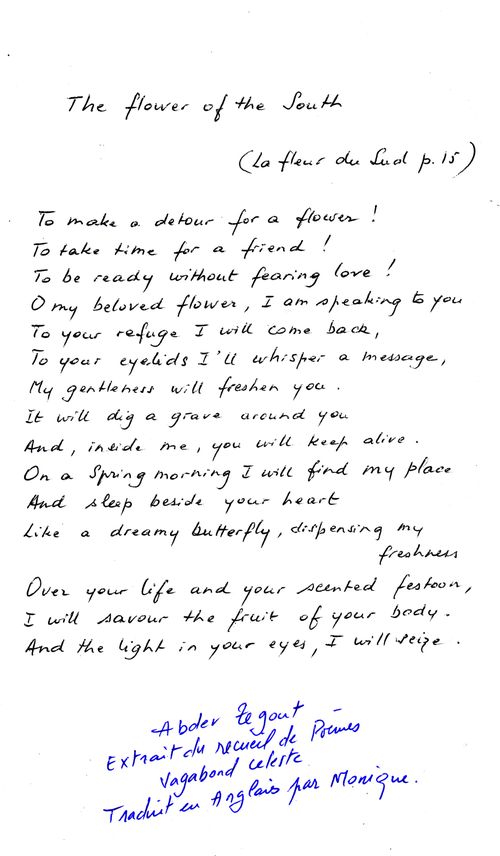 The flower of the South
(La fleur du Sud p.15)
To make a detour for a flower !
To take time for a friend !
To be ready without fearing love !
O my beloved flower, I am speaking to you
To your refuge I will come back,
To your eyelids I'll whisper a message,
My gentleness will freshen you.
It will dig a grave around you
And, inside me, you will keep alive.
On a Spring morning I will find my place
And sleep beside your heart
Like a dreamy butterfly, dispensing my
freshness
Over your life and your scented festoon,
I will savour the fruit of your body.
And the light in your eyes, I will seize.
Abder Zegout
Extrait du recueil de Poèmes
Vagabond celeste
Traduit en Anglais par Monique.